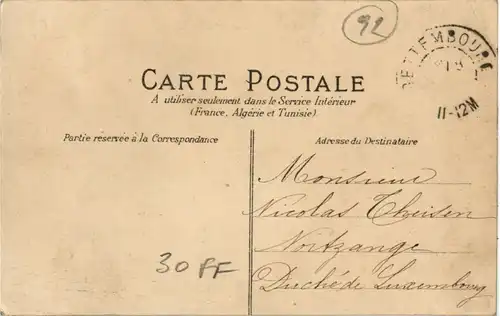 92
BETTEMBOURG
11-12M
CARTE POSTALE
A utiliser seulement dans le Service Intérieur
(France, Algérie et Tunisie)
Partie réservée à la Correspondance
Adresse du Destinataire
Monsieur
Nicolas Theisen
Noertzange
Duché de Luxembourg
30 FF